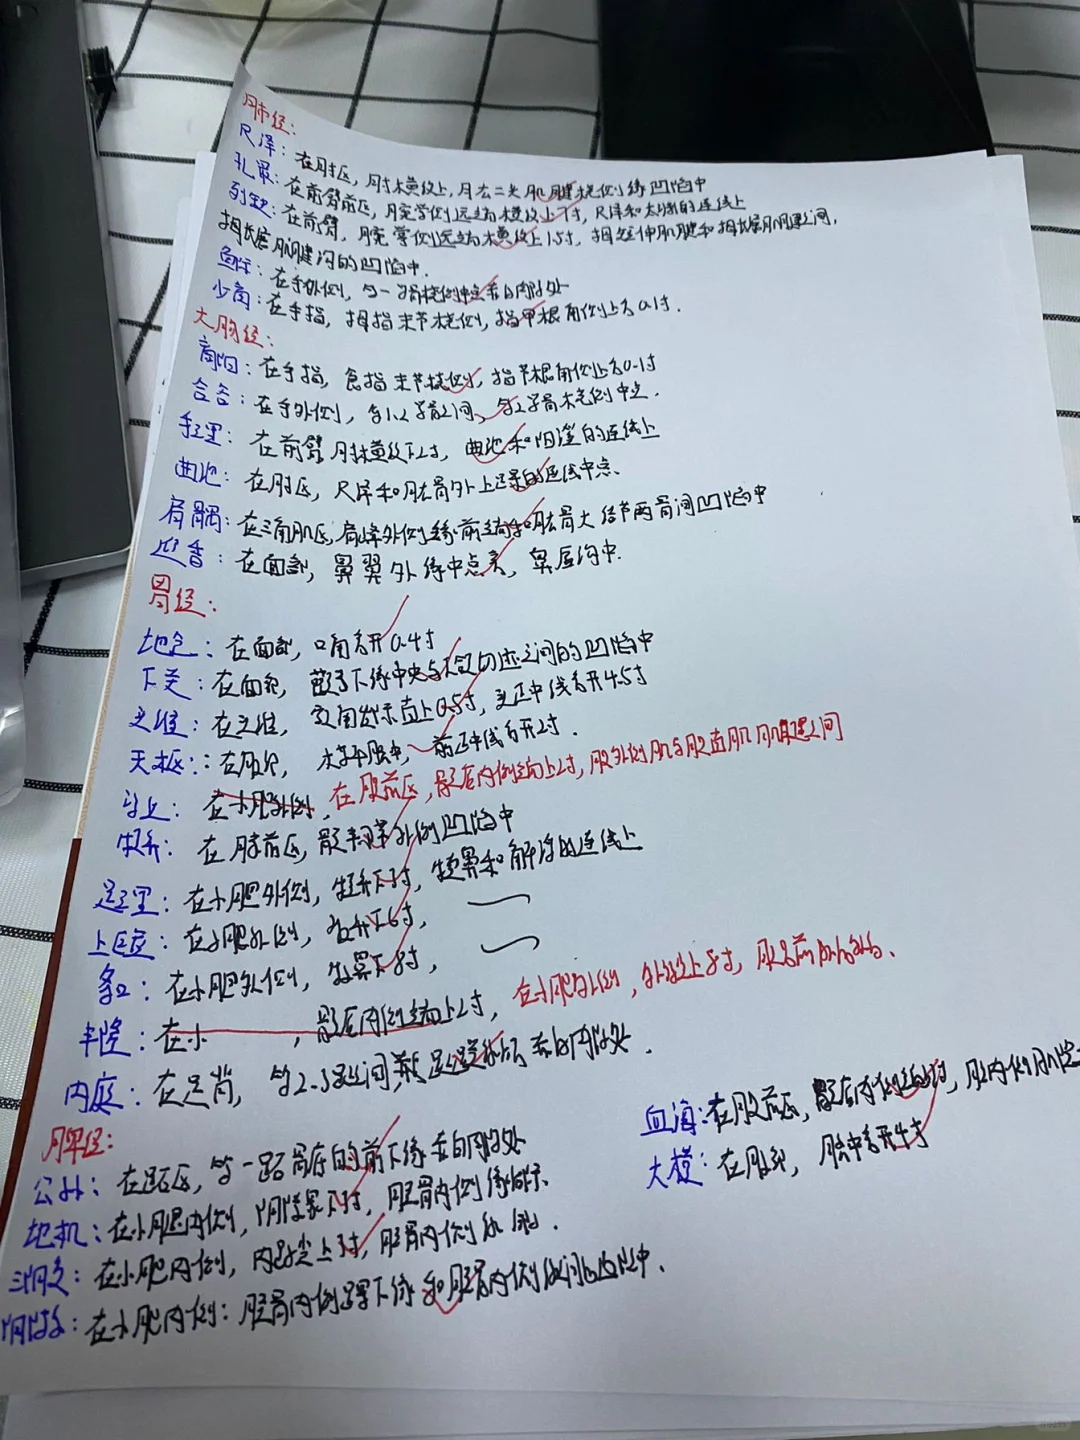 肺经:
尺泽: 在肘区, 肘横纹上, 肱二头肌腱桡侧缘凹陷中
孔最: 在前臂前区, 腕掌侧远端横纹上7寸, 尺泽和太渊的连线上
列缺: 在前臂, 腕掌侧远端横纹上1.5寸, 拇短伸肌腱和拇长展肌腱之间,
拇长展肌腱沟的凹陷中.
鱼际: 在手外侧, 第一掌骨桡侧中点赤白肉际处
少商: 在手指, 拇指末节桡侧, 指甲根角侧上方0.1寸.
大肠经:
商阳: 在手指, 食指末节桡侧, 指节根角侧上方0.1寸
合谷: 在手外侧, 第1、2掌骨之间, 第2掌骨桡侧中点.
手三里: 在前臂 肘横纹下2寸, 曲池和阳溪的连线上
曲池: 在肘区, 尺泽和肱骨外上髁的连线中点、
肩髃: 在三角肌区, 肩峰外侧缘前端和肱骨大结节两骨间凹陷中
迎香: 在面部, 鼻翼外缘中点旁, 鼻唇沟中.
胃经:
地仓: 在面部, 口角旁开0.4寸
下关: 在面部, 颧弓下缘中央与下颌切迹之间的凹陷中
头维: 在头维, 额角发际直上0.5寸, 头正中线旁开4.5寸
天枢: 在腹部, 横平脐中, 前正中线旁开2寸.
梁丘: 在小腿外侧, 在股前区, 髌底外侧端上2寸, 股外侧肌与股直肌肌腱之间
犊鼻: 在膝前区, 髌韧带外侧凹陷中
足三里: 在小腿外侧, 犊鼻下3寸, 犊鼻和解溪的连线上
上巨虚: 在小腿外侧, 犊鼻下6寸,
条口: 在小腿外侧, 犊鼻下8寸,
丰隆: 在小 , 髌底内侧端上2寸, 在小腿外侧, 外踝尖上8寸, 胫骨前肌的外缘、
内庭: 在足背, 第2、3趾间, 趾蹼缘后方赤白肉际处.
脾经:
公孙: 在跖区, 第一跖骨底的前下缘赤白肉际处
地机: 在小腿内侧, 阴陵泉下3寸, 胫骨内侧缘后际、
三阴交: 在小腿内侧, 内踝尖上3寸, 胫骨内侧缘后际.
阴陵泉: 在小腿内侧: 胫骨内侧髁下缘和胫骨内侧缘间的凹陷中.
血海: 在股前区, 髌底内侧端上2寸, 股内侧肌隆
大横: 在腹部, 脐中旁开4寸